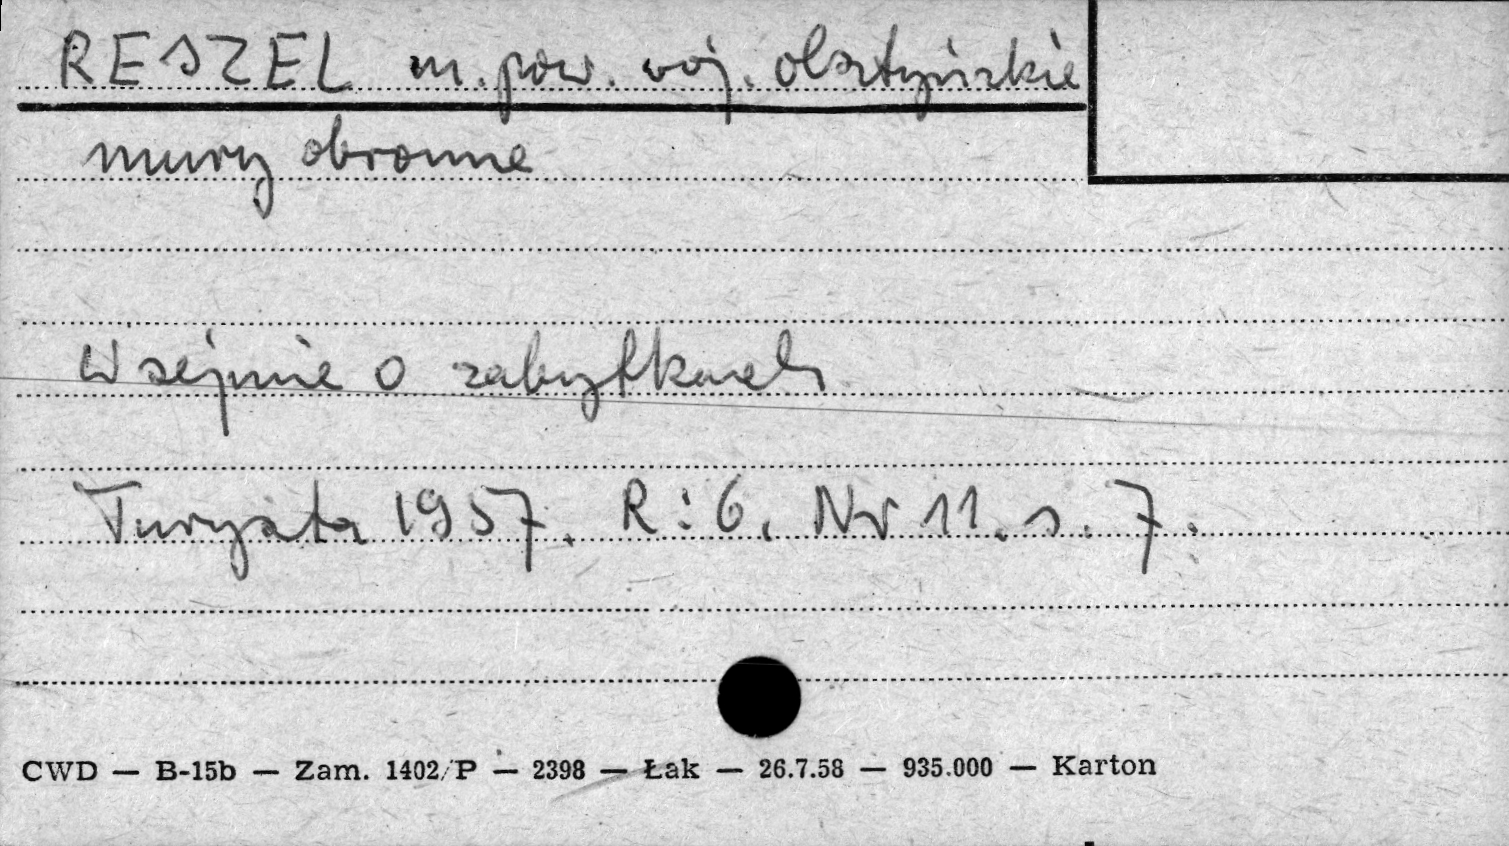 RESZEL m. pow. woj. olsztyńskie
mury obronne
W sejmie o zabytkach
Turysta 1957. R: 6. Nr 11. s. 7.
CWD — B-15b — Zam. 1402/P — 2398 — Łak — 26.7.58 — 935.000 — Karton